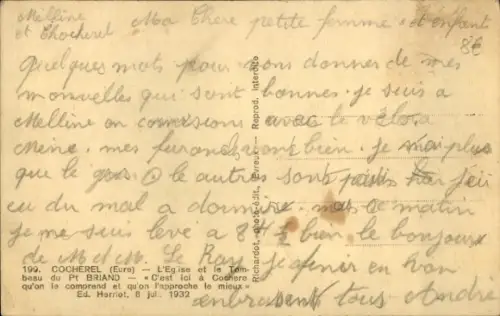 Melline
et Chocherel
Ma Chere petite femme et enfent
8€
Quelques mots pour vous donner de mes
nouvelles qui sont bonnes. je suis a
Melline en comissions avec le vélo a
Meine. mes furoncles vont bien. je n'ai plus
que le gros le autres sont partis hier j'ai
eu du mal a dormire. mais ce matin
je me suis levé a 8h ½ bien le bonjour
de M et M. Le Ray je finir en vou
enbrasent tous André
199. COCHEREL (Eure) — L'Eglise et le Tom-
beau du Pt BRIAND — « C'est ici à Cocherel
qu'on le comprend et qu'on l'approche le mieux »
Ed. Herriot, 8 jul. 1932
Richardot, photo-édit., Evreux — Reprod. interdite